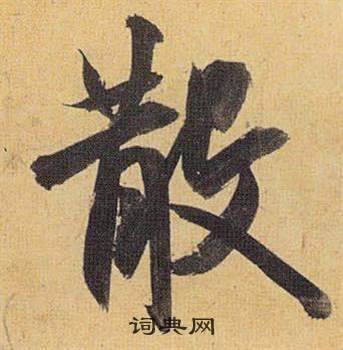 散
词典网